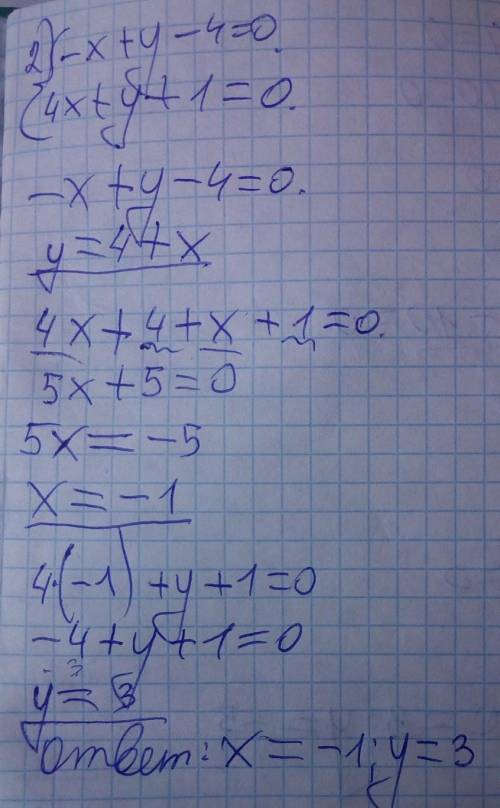 2) { -x+y-4=0.
4x+y+1=0.
-x+y-4=0.
y=4+x
4x+4+x+1=0.
5x+5=0
5x=-5
x=-1
4·(-1)+y+1=0
-4+y+1=0
y=3
ответ: x=-1; y=3